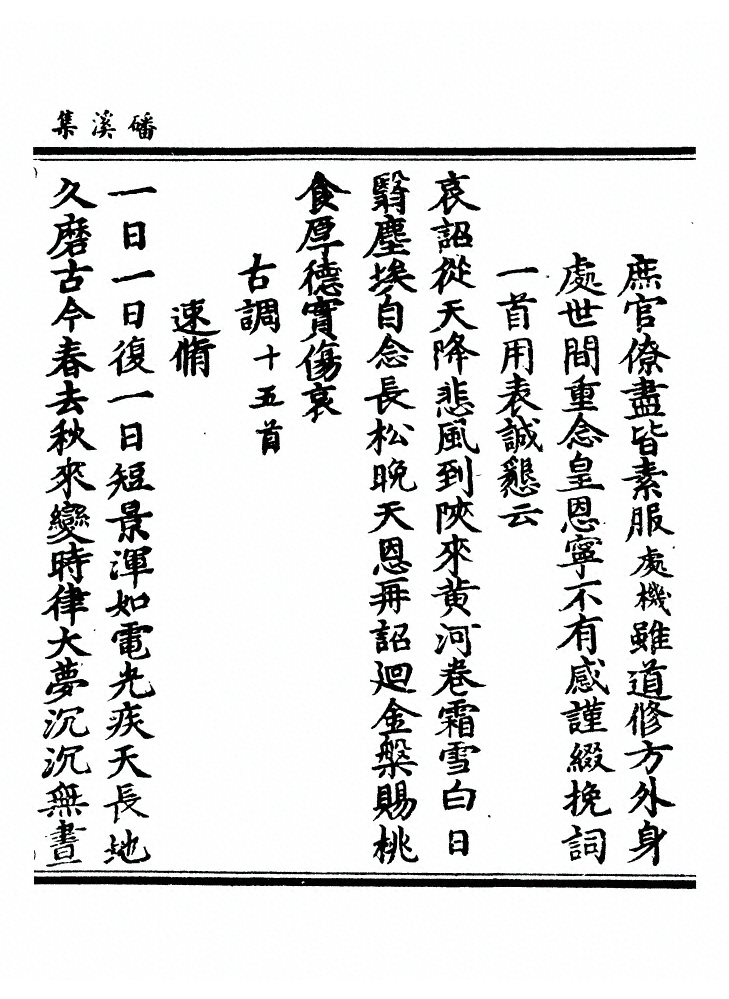 磻溪集
庶官僚盡皆素服處機雖道修方外身
處世間重念皇恩寧不有感謹綴挽詞
一首用表誠懇云
哀詔從天降悲風到陝來黄河卷霜雪白日
翳塵埃自念長松晩天恩再詔廻金槃賜桃
食厚德實傷哀
古調十五首
速脩
一日一日復一日短景渾如電光疾天長地
久磨古今春去秋來變時律大夢沉沉無晝